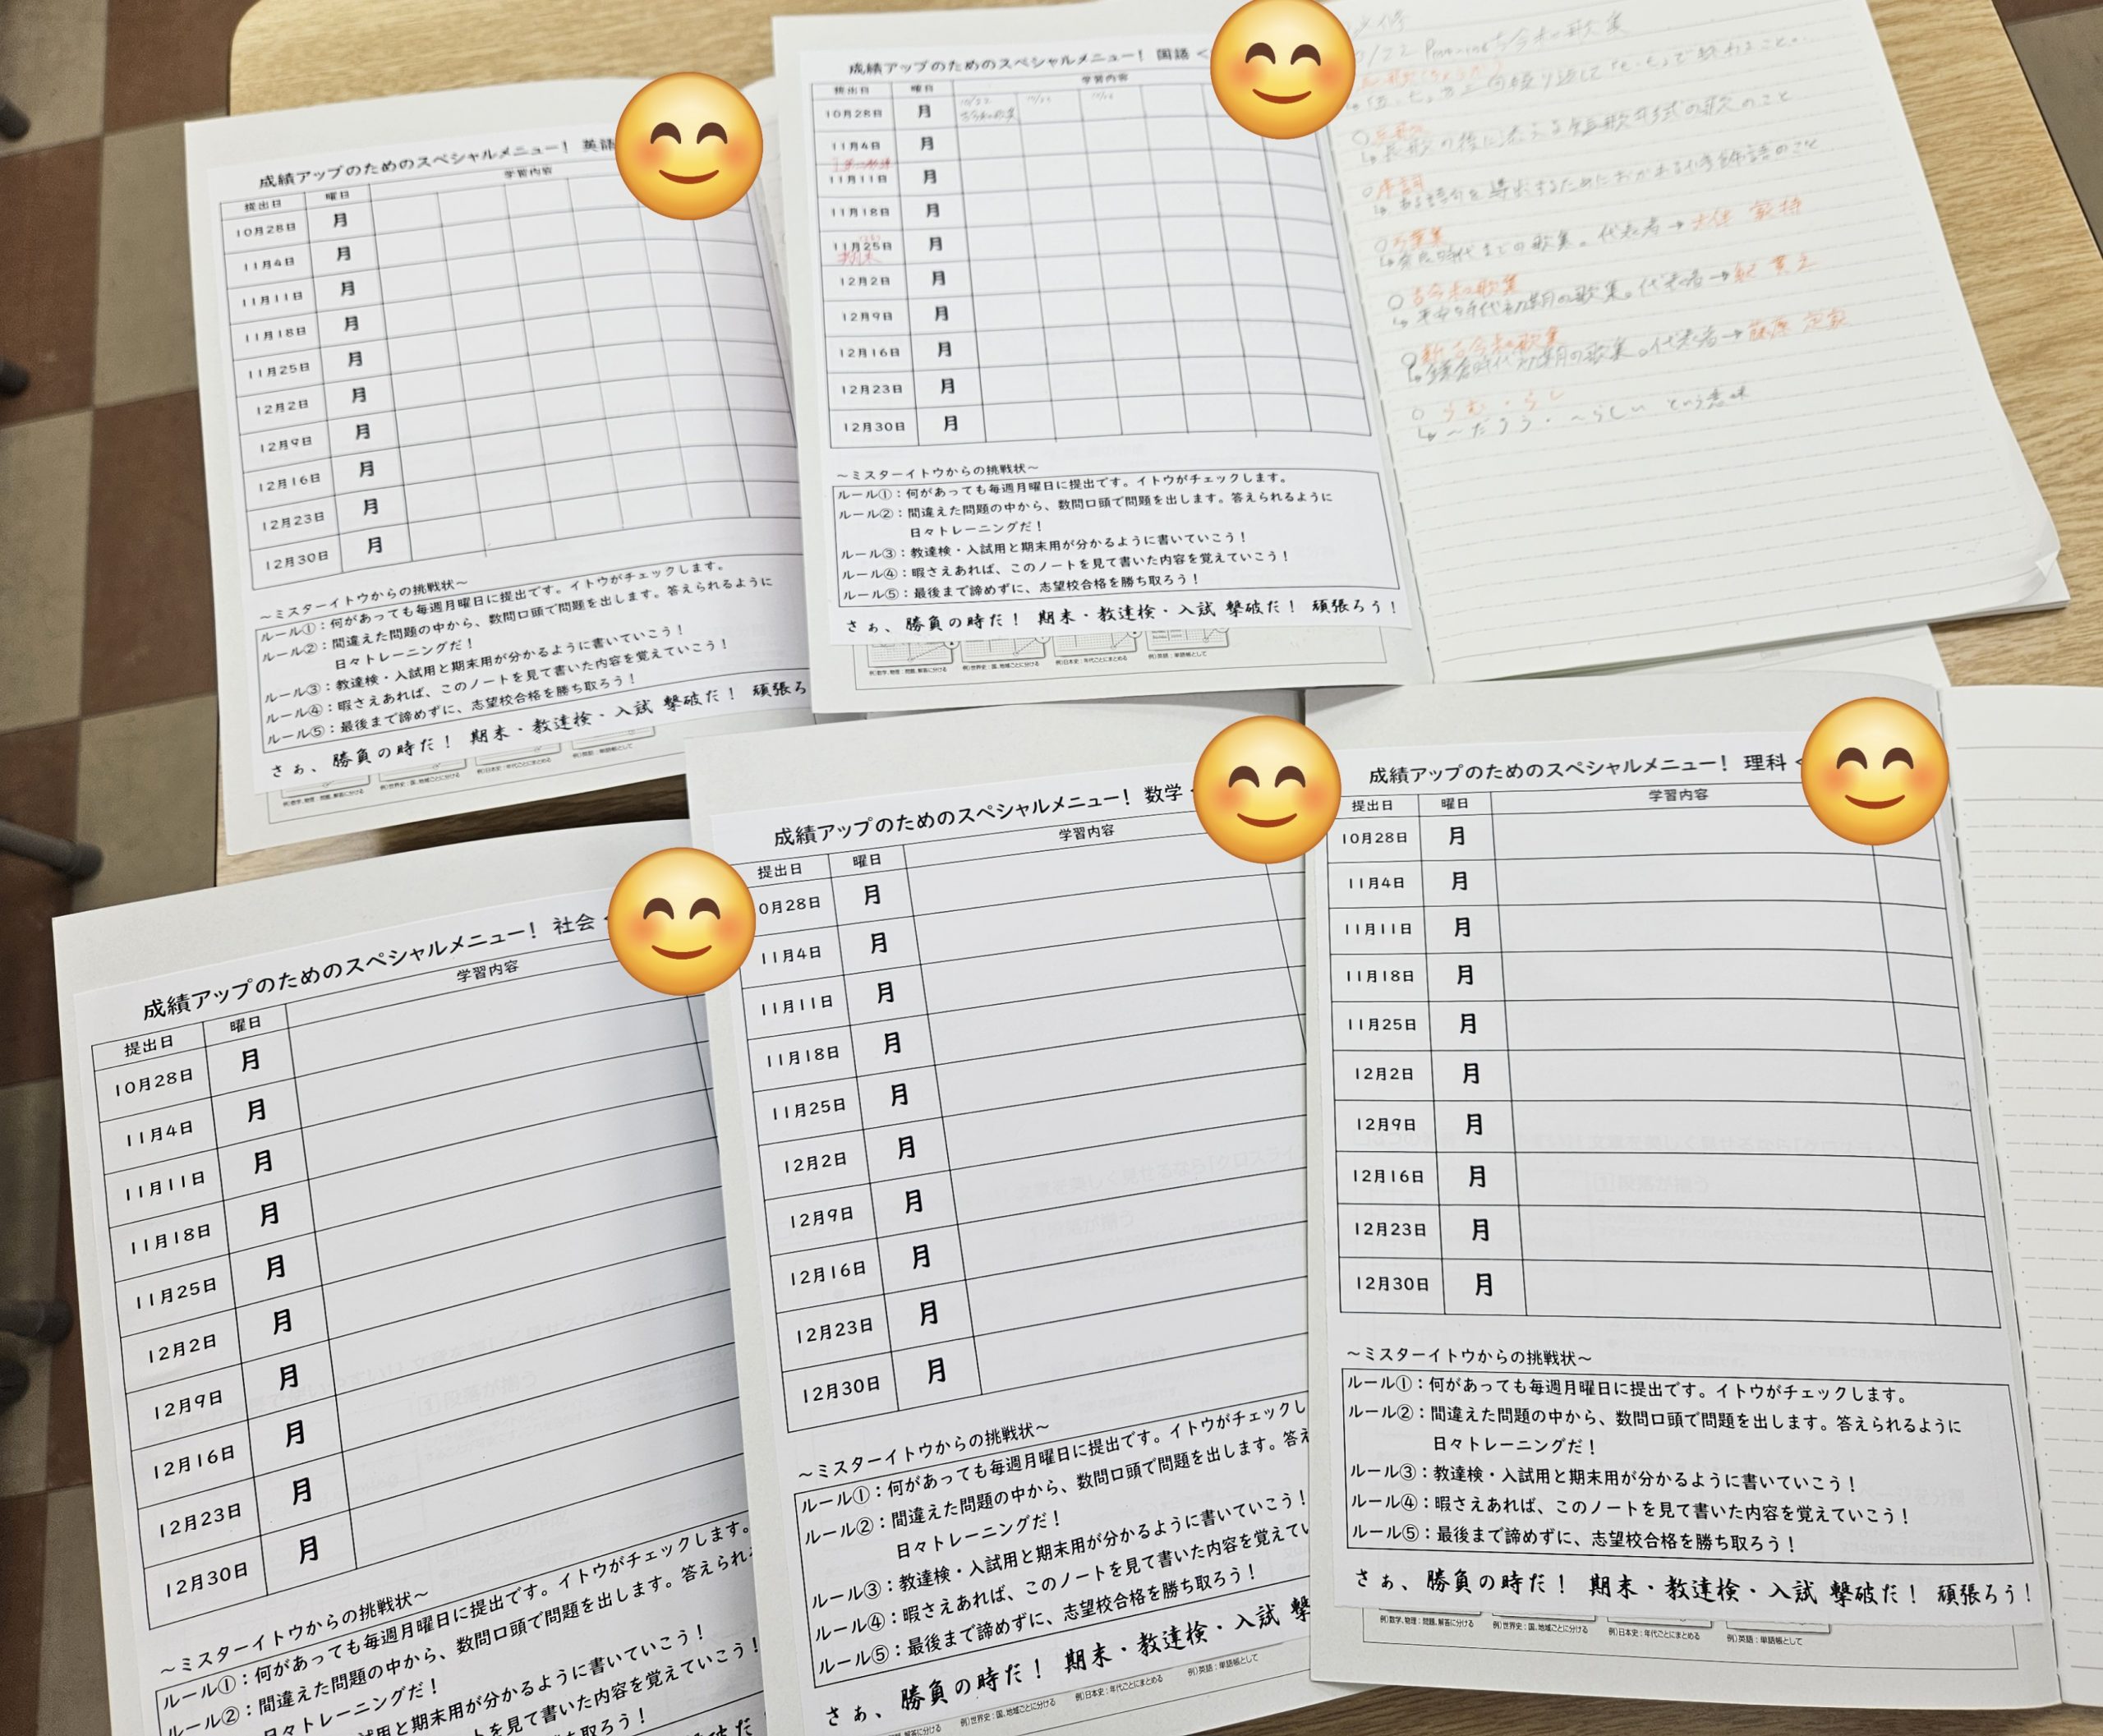 成績アップのためのスペシャルメニュー! 英語
提出日 曜日 学習内容
10月28日 月
11月4日 月
11月11日 月
11月18日 月
11月25日 月
12月2日 月
12月9日 月
12月16日 月
12月23日 月
12月30日 月
～ミスターイトウからの挑戦状～
ルール①:何があっても毎週月曜日に提出です。イトウがチェックします。
ルール②:間違えた問題の中から、数問口頭で問題を出します。答えられるように
日々トレーニングだ!
ルール③:教達検・入試用と期末用が分かるように書いていこう!
ルール④:暇さえあれば、このノートを見て書いた内容を覚えていこう!
ルール⑤:最後まで諦めずに、志望校合格を勝ち取ろう!
さぁ、勝負の時だ! 期末・教達検・入試 撃破だ! 頑張ろ
例)数学、物理:問題、解答に分ける 例)世界史:国、地域ごとに分ける 例)日本史:年代ごとにまとめる 例)英語:単語帳として
成績アップのためのスペシャルメニュー! 国語 <
提出日 曜日 学習内容
10月28日 月 10/22
古今和歌集
11月4日 月
11月11日 月
11月18日 月
11月25日 月
期末
12月2日 月
12月9日 月
12月16日 月
12月23日 月
12月30日 月
～ミスターイトウからの挑戦状～
ルール①:何があっても毎週月曜日に提出です。イトウがチェックします。
ルール②:間違えた問題の中から、数問口頭で問題を出します。答えられるように
日々トレーニングだ!
ルール③:教達検・入試用と期末用が分かるように書いていこう!
ルール④:暇さえあれば、このノートを見て書いた内容を覚えていこう!
ルール⑤:最後まで諦めずに、志望校合格を勝ち取ろう!
さぁ、勝負の時だ! 期末・教達検・入試 撃破だ! 頑張ろう!
例)数学、物理:問題、解答に分ける 例)世界史:国、地域ごとに分ける 例)日本史:年代ごとにまとめる 例)英語:単語帳として
古今和歌集
で終わること。
○反歌
↳長歌の後に添える短歌形式の歌のこと
○序詞
↳ある語句を導き出すためにおかれる修飾語のこと
○万葉集
↳奈良時代までの歌集。代表者→大伴 家持
○古今和歌集
↳平安時代初期の歌集。代表者→紀 貫之
○新古今和歌集
↳鎌倉時代初期の歌集。代表者→藤原 定家
○らむ・らし
↳～だろう・～らしい という意味
成績アップのためのスペシャルメニュー! 社会 <
提出日 曜日 学習内容
10月28日 月
11月4日 月
11月11日 月
11月18日 月
11月25日 月
12月2日 月
12月9日 月
12月16日 月
12月23日 月
12月30日 月
～ミスターイトウからの挑戦状～
ルール①:何があっても毎週月曜日に提出です。イトウがチェックします。
ルール②:間違えた問題の中から、数問口頭で問題を出します。答えられ
日々トレーニングだ!
試用と期末用が分かるように書いていこう!
トを見て書いた内容を覚えていこう!
ち取ろう!
破だ
成績アップのためのスペシャルメニュー! 数学
提出日 曜日 学習内容
0月28日 月
11月4日 月
11月11日 月
11月18日 月
11月25日 月
12月2日 月
12月9日 月
12月16日 月
12月23日 月
12月30日 月
～ミスターイトウからの挑戦状～
ルール①:何があっても毎週月曜日に提出です。イトウがチェックし
ルール②:間違えた問題の中から、数問口頭で問題を出します。答え
日々トレーニングだ!
ルール③:教達検・入試用と期末用が分かるように書いていこう!
ルール④:暇さえあれば、このノートを見て書いた内容を覚えてい
ルール⑤:最後まで諦めずに、志望校合格を勝ち取ろう!
さぁ、勝負の時だ! 期末・教達検・入試 撃
解答に分ける 例)世界史:国、地域ごとに分ける 例)日本史:年代ごとにまとめる 例)英語:単語帳として
成績アップのためのスペシャルメニュー! 理科 <
提出日 曜日 学習内容
10月28日 月
11月4日 月
11月11日 月
11月18日 月
11月25日 月
12月2日 月
12月9日 月
12月16日 月
12月23日 月
12月30日 月
～ミスターイトウからの挑戦状～
ルール①:何があっても毎週月曜日に提出です。イトウがチェックします。
ルール②:間違えた問題の中から、数問口頭で問題を出します。答えられるように
日々トレーニングだ!
ルール③:教達検・入試用と期末用が分かるように書いていこう!
ルール④:暇さえあれば、このノートを見て書いた内容を覚えていこう!
ルール⑤:最後まで諦めずに、志望校合格を勝ち取ろう!
さぁ、勝負の時だ! 期末・教達検・入試 撃破だ! 頑張ろう!
例)数学、物理:問題、解答に分ける 例)世界史:国、地域ごとに分ける 例)日本史:年代ごとにまとめる 例)英語:単語帳として